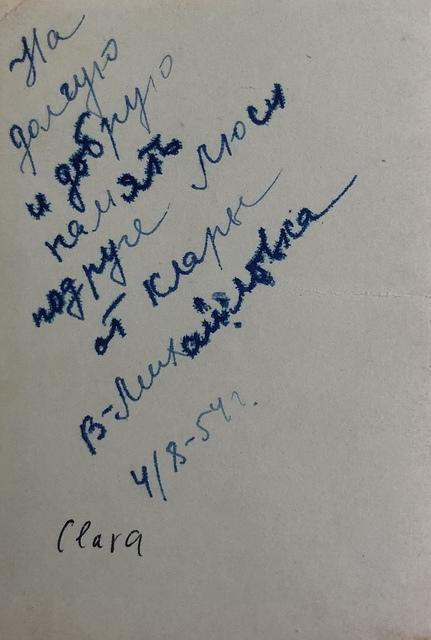 На
долгую
и добрую
память
подруге Люси
от Клары
В-Михайловка
4/8-54г.
Clara